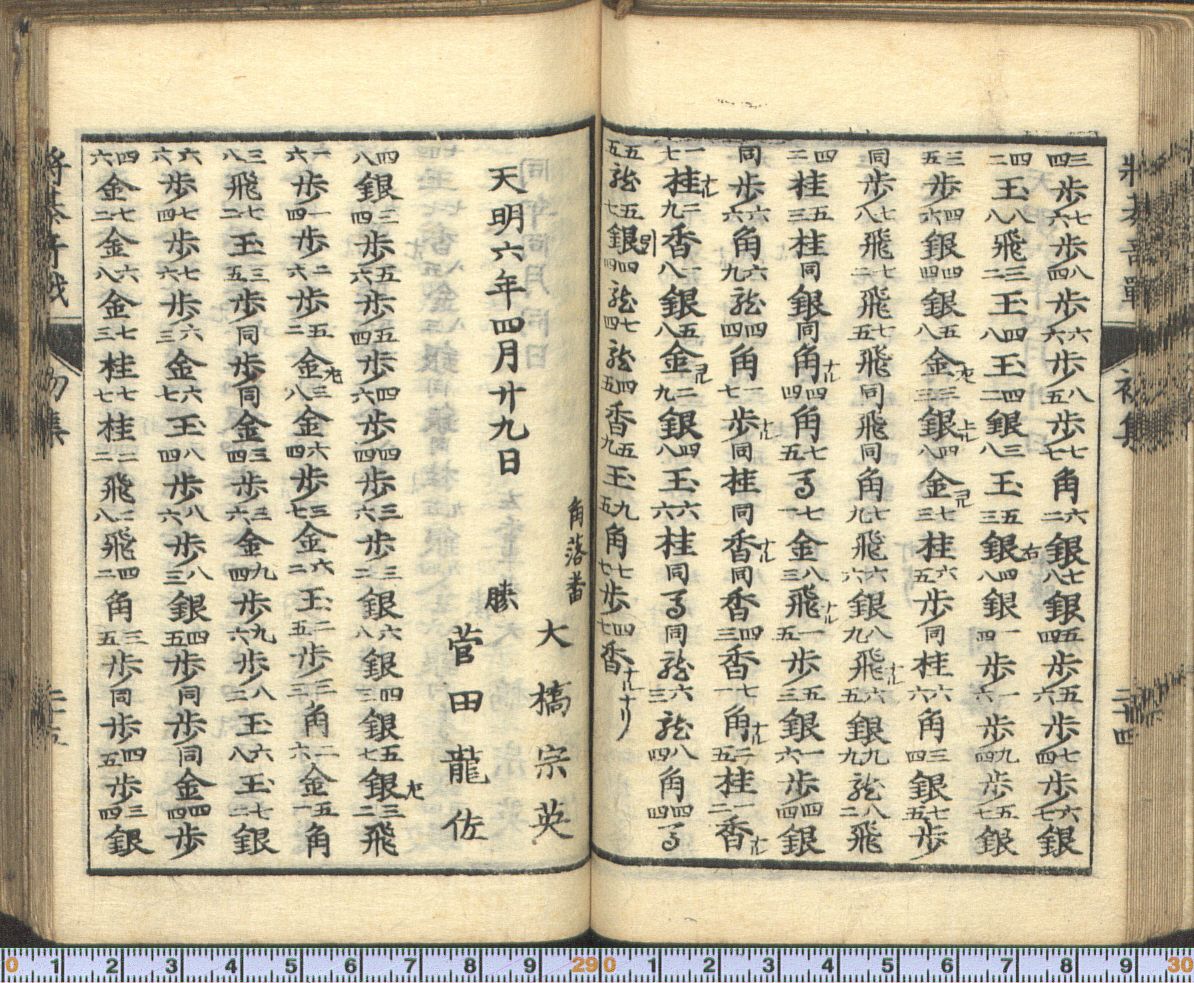 將棊奇戰　初集　二十四
三四歩七六歩八四歩六六歩八五歩七七角六二銀七八銀五四歩五六歩七四歩六七銀
四二玉八八飛三二玉四八玉四二銀三八玉五三銀右四八銀一四歩一六歩九四歩五七銀
三五歩四六銀四四銀五八金左三三銀上四八金ヨル七三桂六五歩同桂六六角三四銀七五歩
同歩七八飛七二飛七五飛同飛同角七九飛六六銀八九飛ナル六五銀九九龍八二飛
四二桂五三桂同銀同角ナル四四角七五馬七一金八三飛ナル一五歩五三銀一六歩四四銀
同歩六六角六九龍四四角一七歩ナル同桂同香ナル同香四三香一七角ナル二五桂一二香ナル
一七桂ナル二九香一八銀五八金ヨル二九銀四八玉六六桂同馬同龍六三龍八四角四四馬
五五龍五七銀引四四龍七四龍四五香五九玉九五角七七歩四七香ナルナリ
天明六年四月廿九日
角落番　大橋宗英
勝　菅田龍佐
四八銀三四歩五六歩五四歩四六歩四四歩三六歩三二銀六八銀四三銀五七銀左三二飛
一六歩一四歩二六歩五二金左三八金六四歩三七金六二玉二五歩三三角二六金五一角
三八飛七二玉三五歩同歩同金三四歩三六金九四歩九六歩八二玉六八玉七二銀
六六歩七四歩七六歩六三金六七玉八四歩八六歩八三銀四五歩同歩同金四四歩
四六金七二金六八金七三桂七七桂二二飛二八飛四二角三五歩同歩四五歩三四銀
將棊奇戰　初集
0 1 2 3 4 5 6 7 8 9 29 0 1 2 3 4 5 6 7 8 9 30